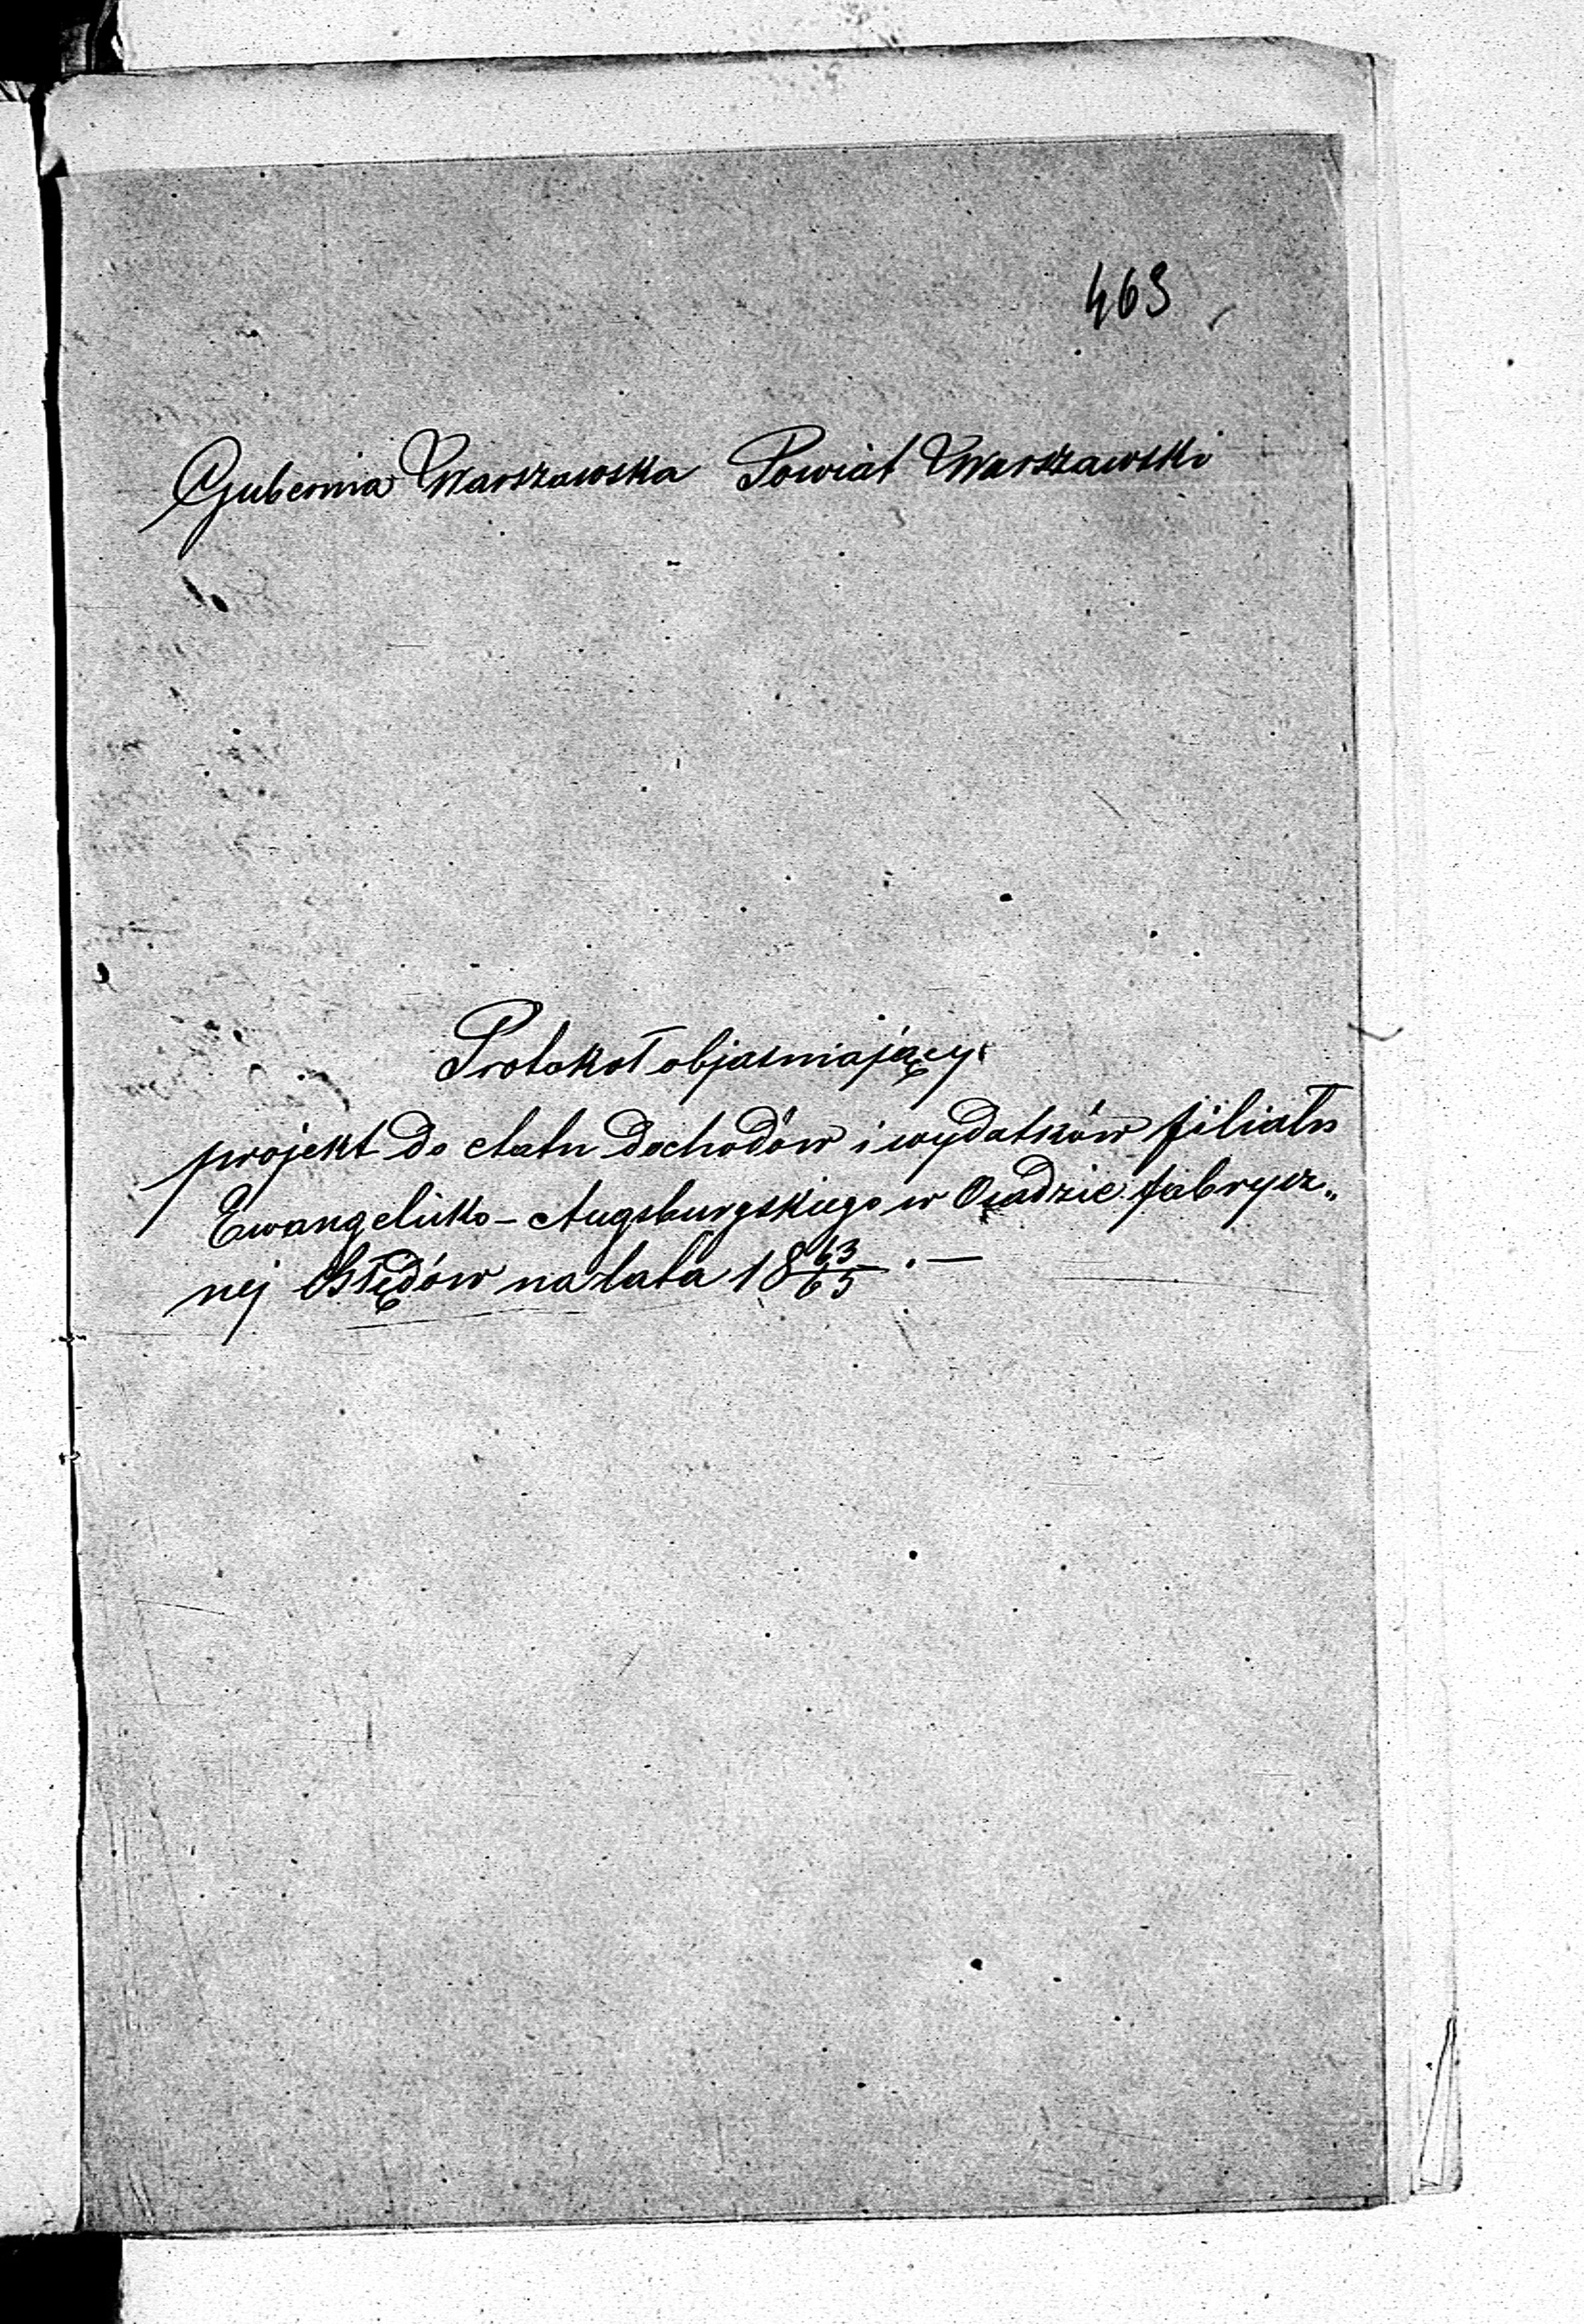 463
Gubernia Warszawska Powiat Warszawski
Protokoł objasniający
projekt do etatu dochodów i wydatków filiału
Ewangelicko-Augsburgskiego w Osadzie fabrycz„
nej Błędów na lata 18 63/65 . —